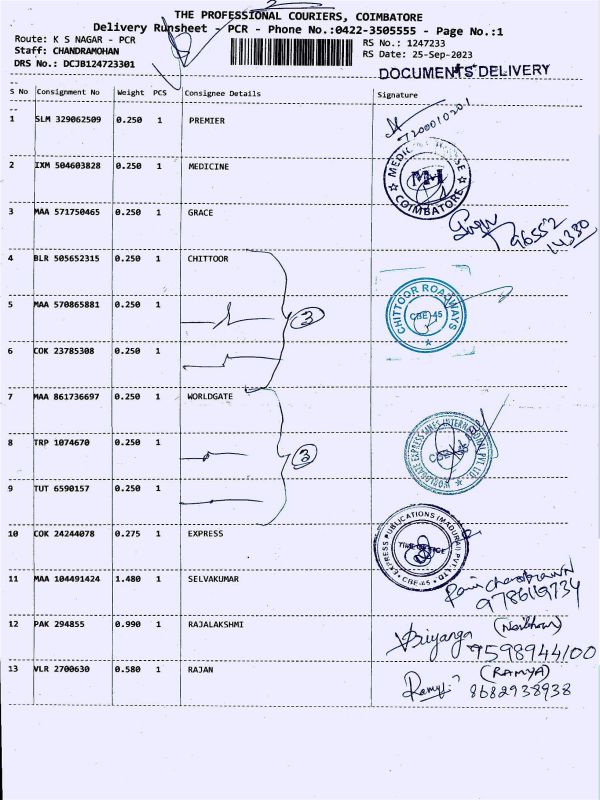 THE PROFESSIONAL COURIERS, COIMBATORE
Delivery Runsheet - PCR - Phone No.:0422-3505555 - Page No.:1
Route: K S NAGAR - PCR
RS No.: 1247233
Staff: CHANDRAMOHAN
RS Date: 25-Sep-2023
DRS No.: DCJB124723301
DOCUMENTS DELIVERY
S No Consignment No Weight PCS Consignee Details Signature
1 SLM 329062509 0.250 1 PREMIER
7200010201
2 IXM 504603828 0.250 1 MEDICINE
MM
COIMBATORE
3 MAA 571750465 0.250 1 GRACE
96552
14330
4 BLR 505652315 0.250 1 CHITTOOR
CHITTOOR ROADWAYS
CBE-45
5 MAA 570865881 0.250 1
3
6 COK 23785308 0.250 1
7 MAA 861736697 0.250 1 WORLDGATE
WORLDGATE EXPRESS LINES INTERNATIONAL PVT. LTD.
8 TRP 1074670 0.250 1
3
9 TUT 6590157 0.250 1
10 COK 24244078 0.275 1 EXPRESS
EXPRESS PUBLICATIONS (MADURAI) PVT. LTD.
TIME OFFICE
CBE-45
11 MAA 104491424 1.480 1 SELVAKUMAR
9786119734
12 PAK 294855 0.990 1 RAJALAKSHMI
Priyanga
9598944100
13 VLR 2700630 0.580 1 RAJAN
(RAMYA)
Ramya
8682938938